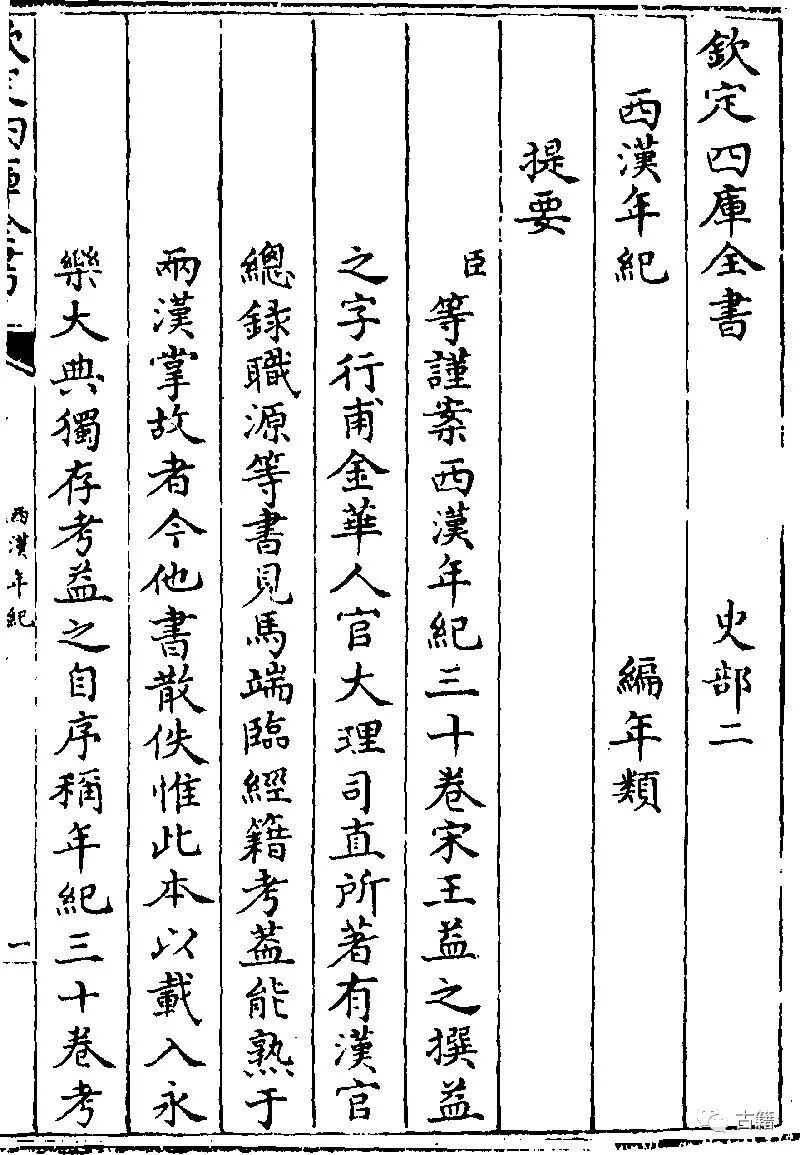 欽定四庫全書 史部二
西漢年紀 編年類
提要
臣等謹案西漢年紀三十卷宋王益之撰益
之字行甫金華人官大理司直所著有漢官
總録職源等書見馬端臨經籍考葢能熟于
兩漢掌故者今他書散佚惟此本以載入永
樂大典獨存考益之自序稱年紀三十卷考
欽定四庫全書
西漢年紀
一
古籍